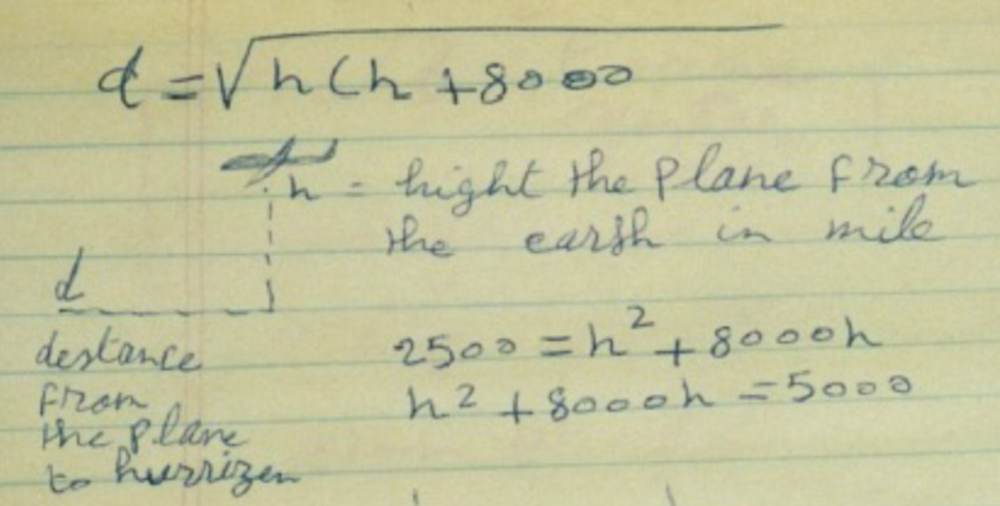 d = √h(h + 8000
h = hight the plane from
the earth in mile
d
destance
from
the plane
to hurrizen
2500 = h² + 8000h
h² + 8000h = 5000